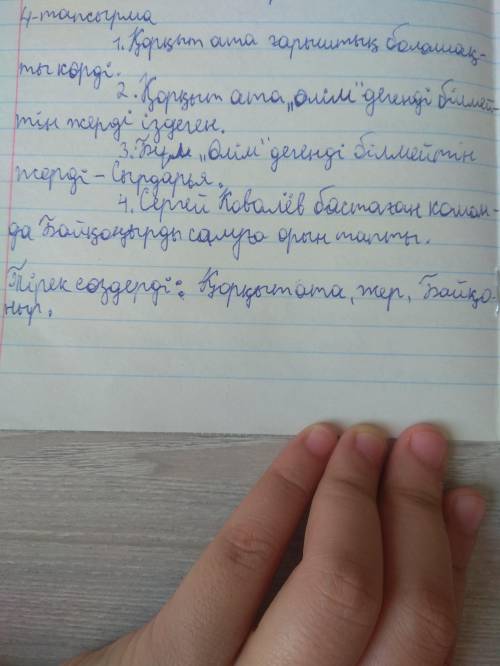 4-тапсырма
1. Қорқыт ата ғарыштық болашақ-
ты көрді.
2. Қорқыт ата „өлім" дегенді білмей-
тін жерді іздеген.
3. Бұл „өлім" дегенді білмейтін
жерді - Сырдарья.
4. Сергей Ковалёв бастаған коман-
да Байқоңырды салуға орын тапты.
Тірек сөздерді: Қорқыт ата, жер, Байқо
ңыр.